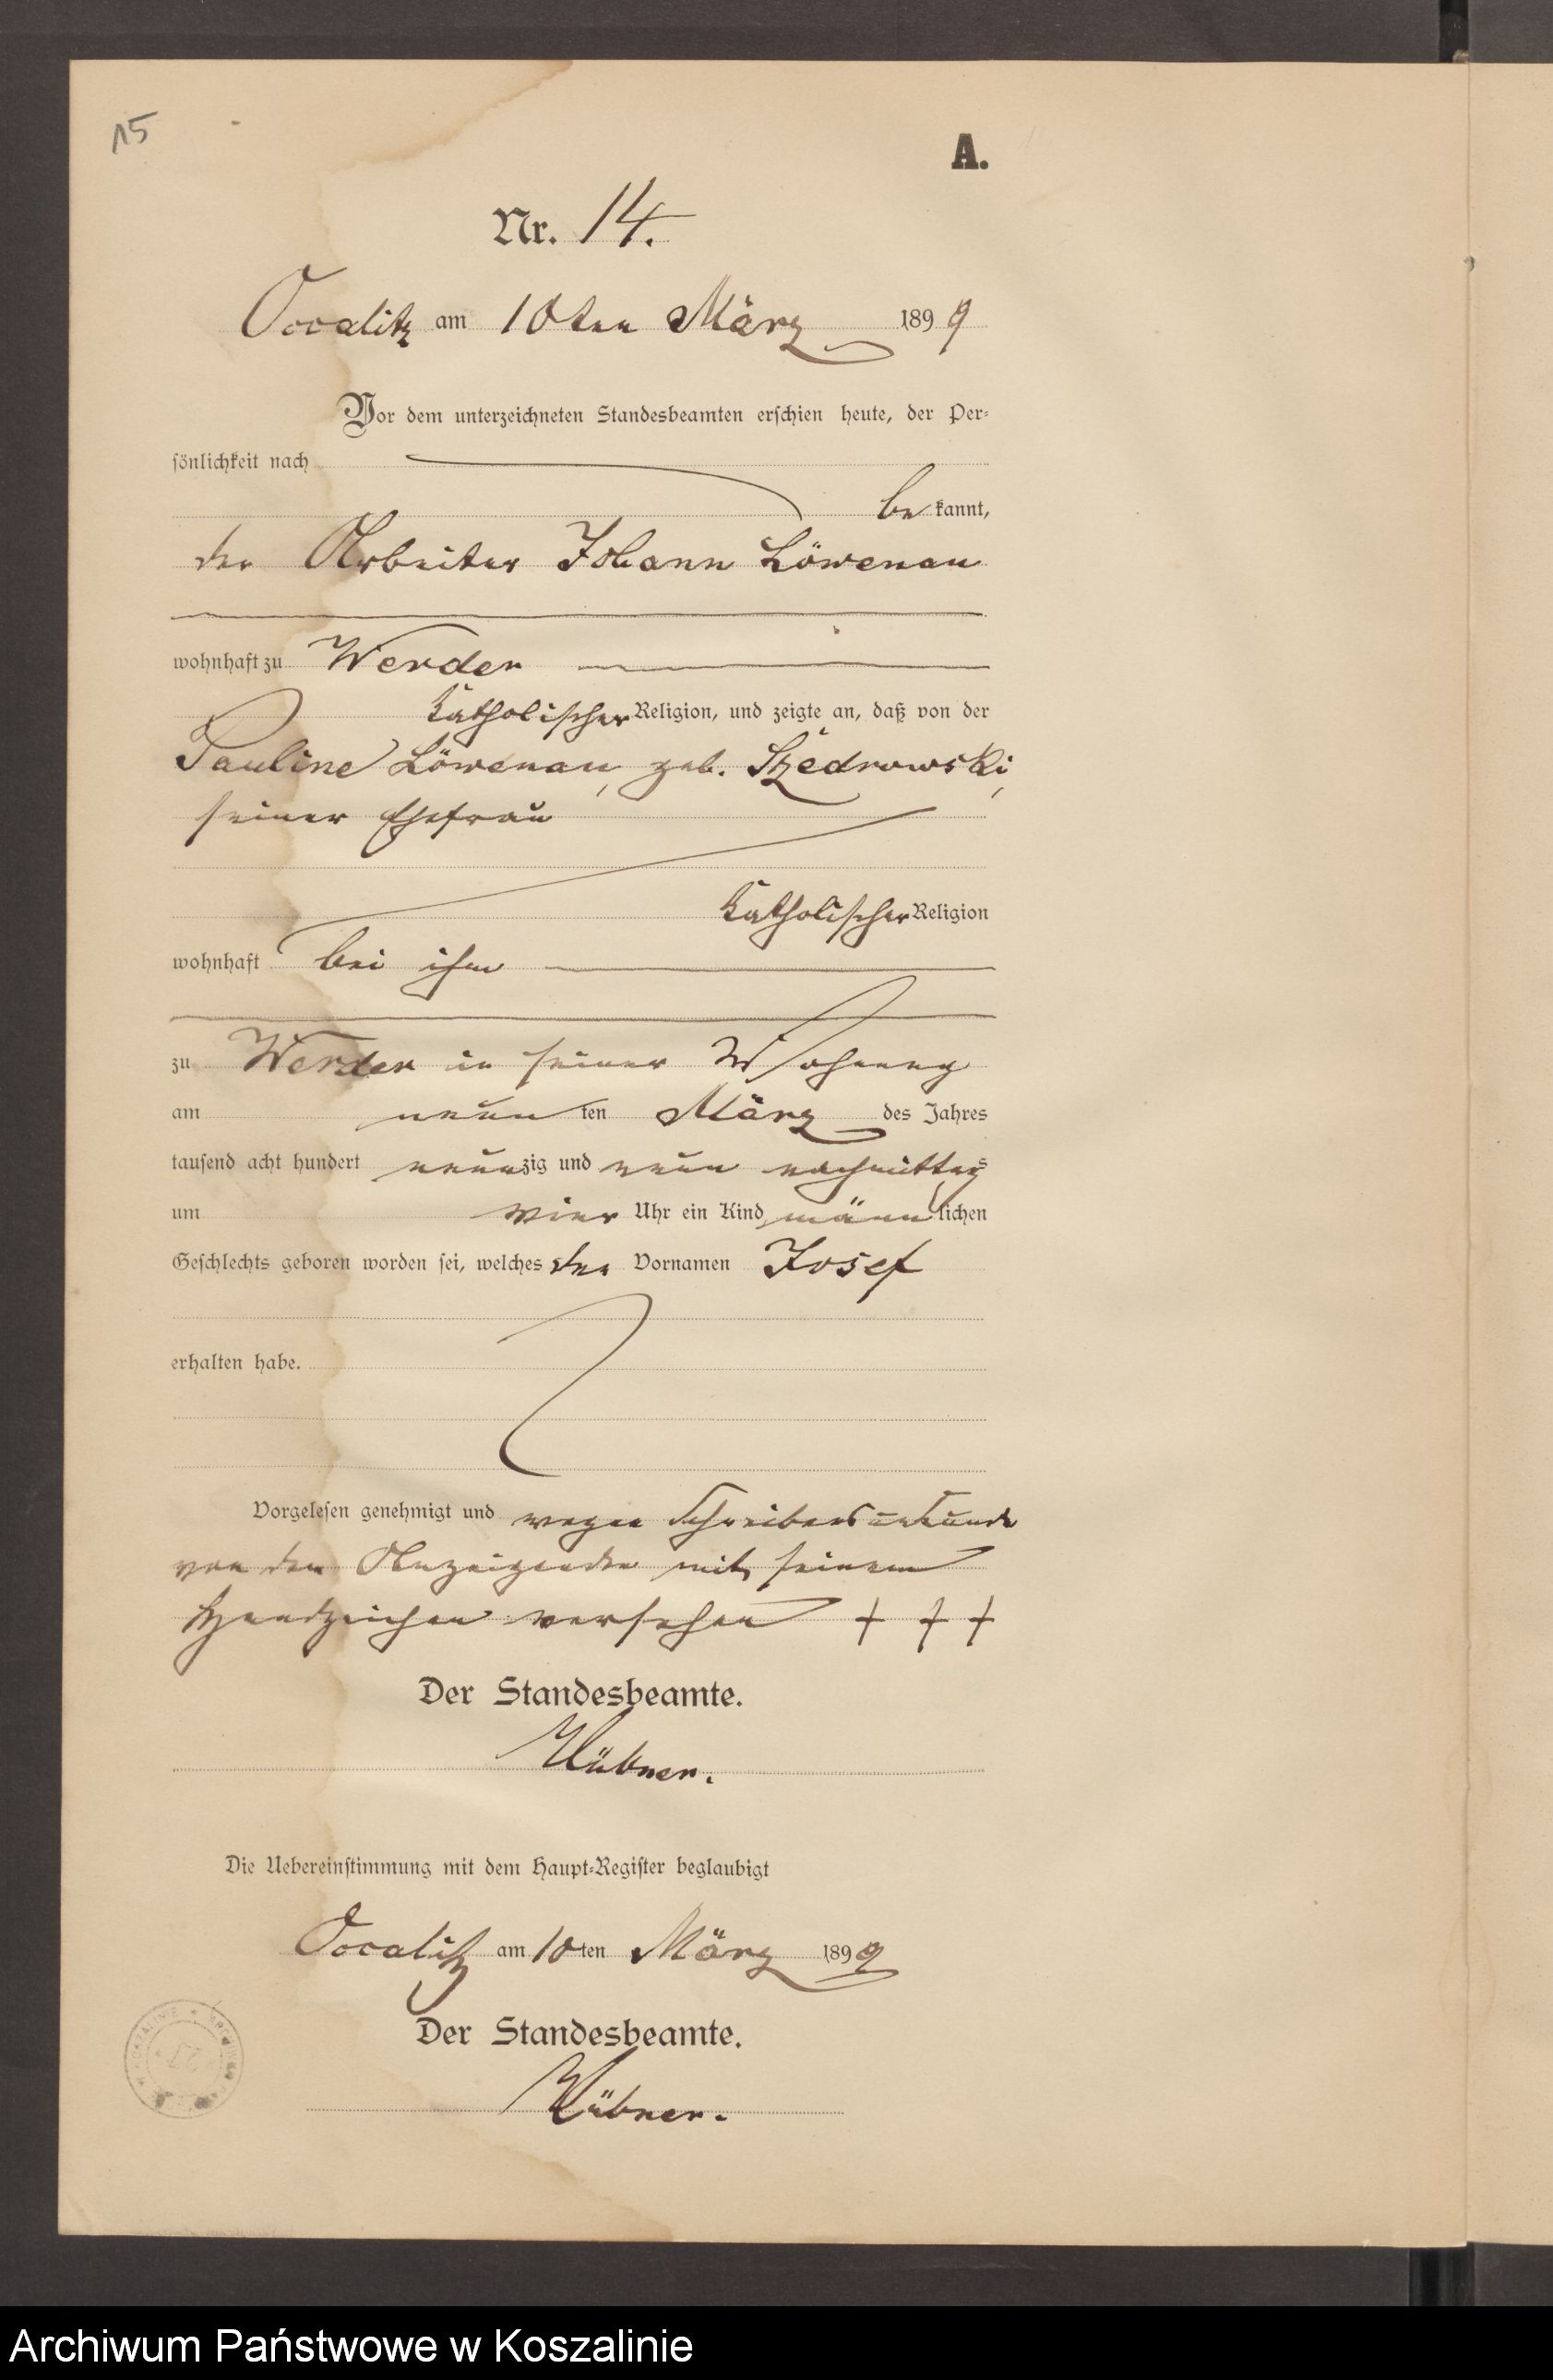 15
A.
Nr. 14.
Occalitz am 10ten März 1899
Vor dem unterzeichneten Standesbeamten erschien heute, der Per-
sönlichkeit nach
bekannt,
der Arbeiter Johann Löwenau
wohnhaft zu Werder
katholischer Religion, und zeigte an, daß von der
Pauline Löwenau, geb. Szedrowski,
seiner Ehefrau
katholischer Religion
wohnhaft bei ihm
zu Werder in seiner Wohnung
am neunten März des Jahres
tausend acht hundert neunzig und neun nachmittags
um vier Uhr ein Kind männlichen
Geschlechts geboren worden sei, welches den Vornamen Josef
erhalten habe.
Vorgelesen genehmigt und wegen Schreibensunkunde
von dem Anzeigenden mit seinem
Handzeichen versehen + + +
Der Standesbeamte.
Hübner.
Die Uebereinstimmung mit dem Haupt-Register beglaubigt
Occalitz am 10ten März 1899
Der Standesbeamte.
Hübner.
Archiwum Państwowe w Koszalinie